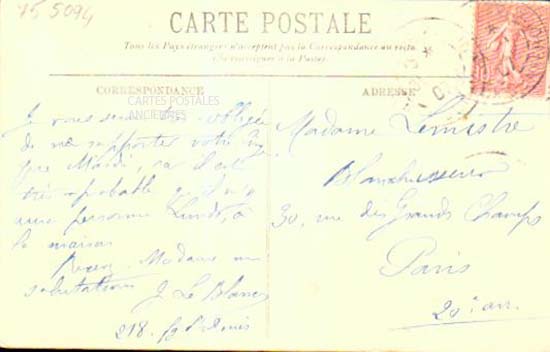 45 5094
CARTE POSTALE
Tous les Pays étrangers n'acceptent pas la Correspondance au recto
(Se renseigner à la Poste)
CORRESPONDANCE
CARTES POSTALES
ANCIENNES
Je vous serais obligée
de me rapporter votre
Mardi, car il est
très probable qu'il n'y
aura personne Lundi, à
la maison
Recevez Madame mes
salutations J. Le Blanc
218. fg St Denis
ADRESSE
Madame Lemistre
Blanchisserie
30, rue des Grands Champs
Paris
20e arr.